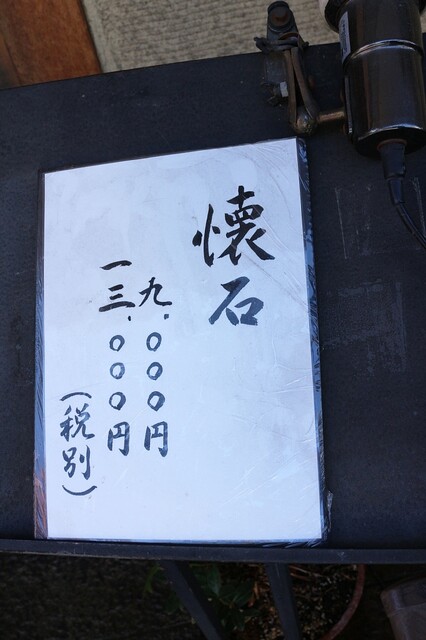 懐石
九、〇〇〇円
一三、〇〇〇円
(税別)